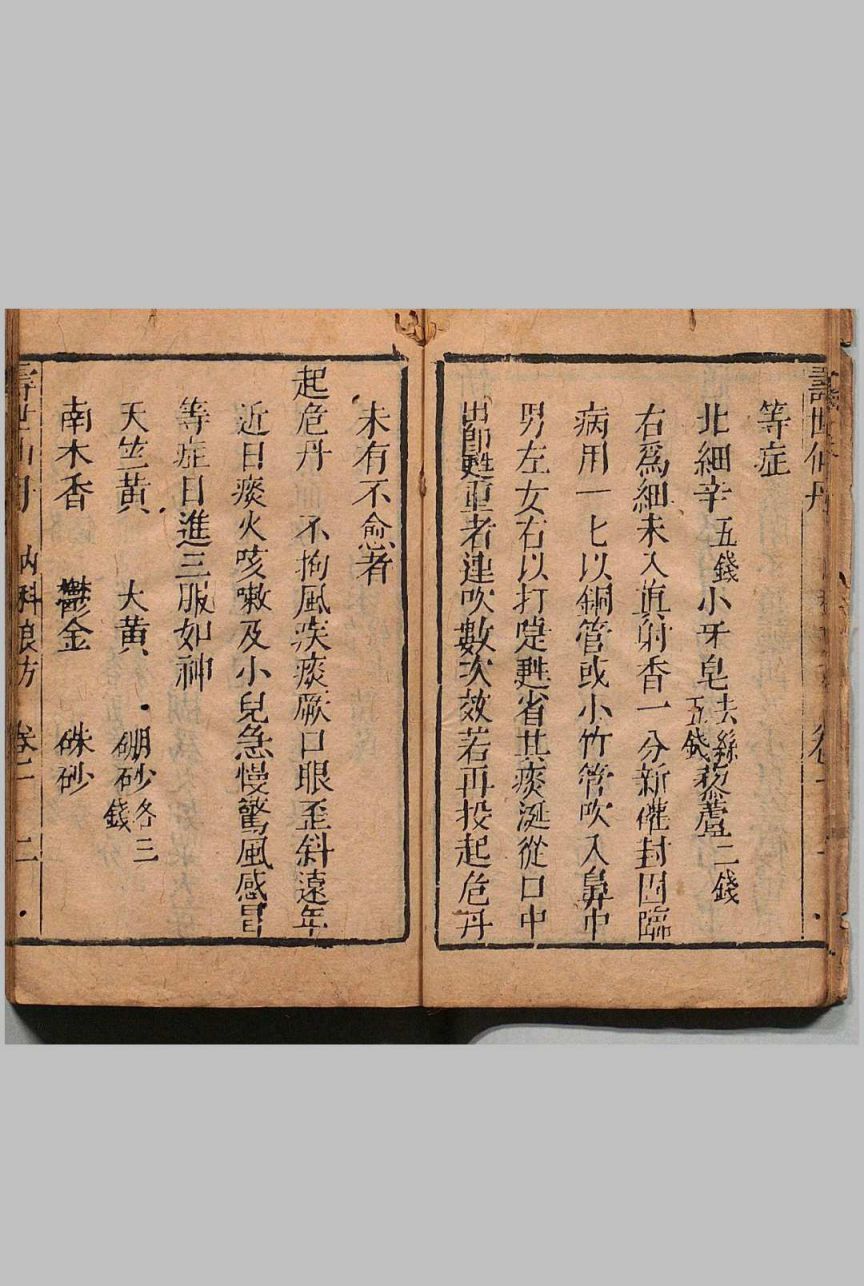 壽世仙丹
等症
北細辛五錢小牙皂去絲五錢藜蘆二錢
右爲細末入真射香一分新確封固臨
病用一匕以銅管或小竹管吹入鼻中
男左女右以打嚏甦省其痰涎從口中
出即甦重者連吹數次效若再投起危丹
未有不愈者
起危丹 不拘風疾痰厥口眼歪斜遠年
近日痰火咳嗽及小兒急慢驚風感冒
等症日進三服如神
天竺黄 大黄 硼砂各三錢
南木香 鬱金 硃砂
壽世仙丹 內科良方 卷二 二